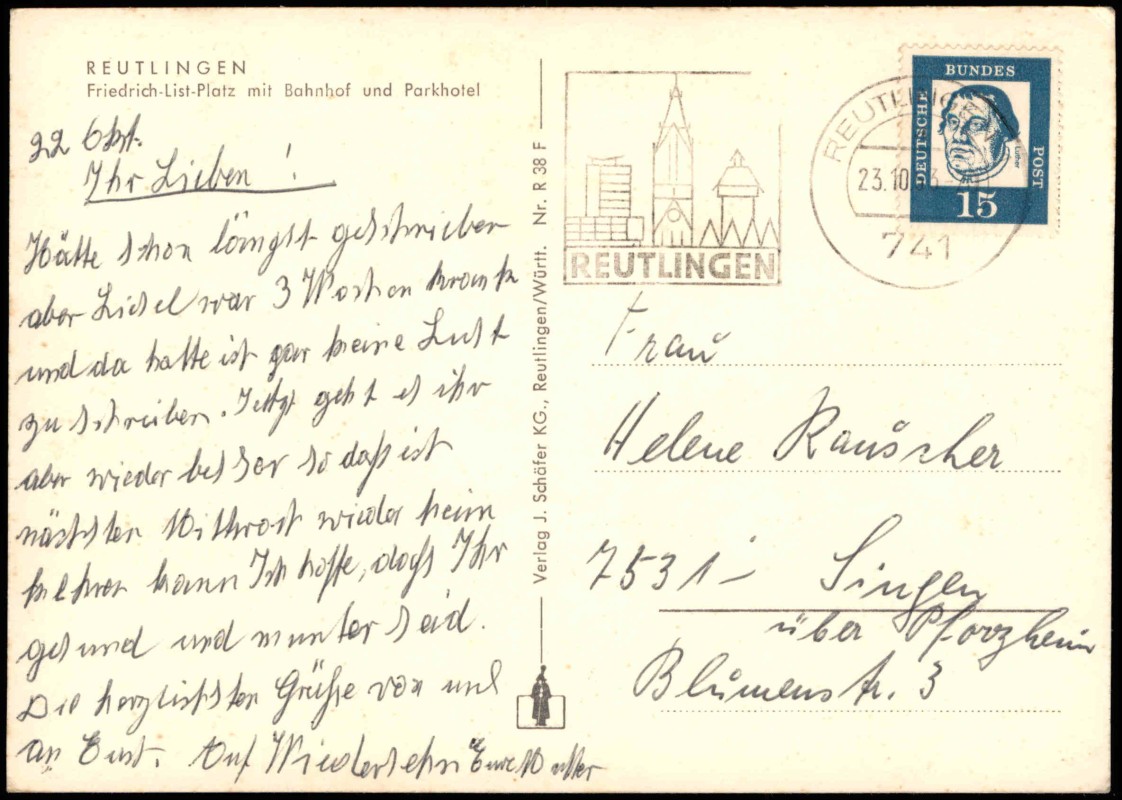 REUTLINGEN
Friedrich-List-Platz mit Bahnhof und Parkhotel
22 Okt.
Ihr Lieben!
Hätte schon längst geschrieben
aber Liesel war 3 Wochen krank
und da hatte ich gar keine Lust
zu schreiben. Jetzt geht es ihr
aber wieder besser so daß ich
nächsten Mittwoch wieder heim
kehren kann Ich hoffe, daß Ihr
gesund und munter seid.
Die herzlichsten Grüße von uns
an Euch. Auf Wiedersehn Eure Mutter
Verlag J. Schäfer KG., Reutlingen/Württ. Nr. R 38 F
REUTLINGEN
REUTLINGEN
23.10.63
741
DEUTSCHE
BUNDES
POST
Luther
15
Frau
Helene Rauscher
7531 - Singen
über Pforzheim
Blumenstr. 3